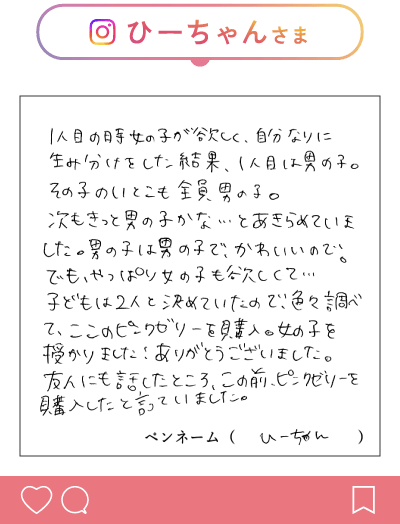 ひーちゃんさま
1人目の時女の子が欲しく、自分なりに
生み分けをした結果、1人目は男の子。
その子のいとこも全員男の子。
次もきっと男の子かな…とあきらめていま
した。男の子は男の子で、かわいいので。
でも、やっぱり女の子も欲しくて…
子どもは2人と決めていたので、色々調べ
て、ここのピンクゼリーを購入。女の子を
授かりました!ありがとうございました。
友人にも話したところ、この前、ピンクゼリーを
購入したと言っていました。
ペンネーム ( ひーちゃん )